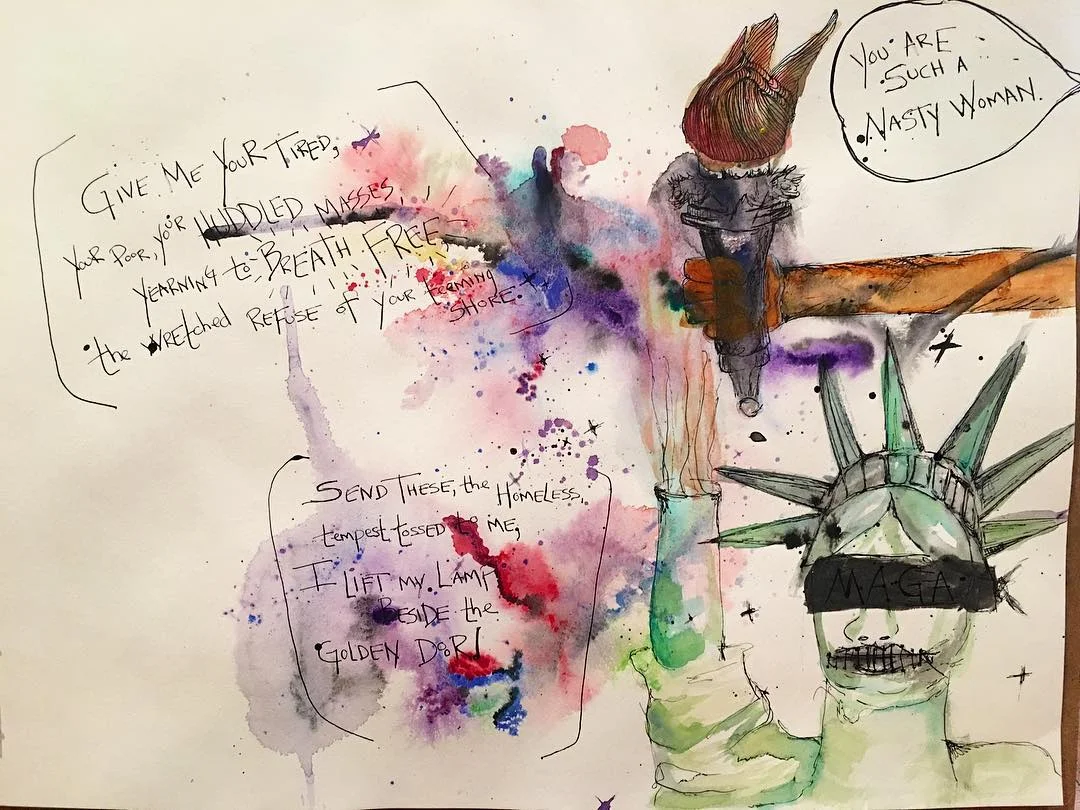 GIVE ME YOUR TIRED,
YOUR POOR, YOUR HUDDLED MASSES,
YEARNING to BREATH FREE,
the WRETCHED REFUSE of YOUR teeming
SHORE.
SEND THESE, the HOMELESS,
tempest tossed to ME,
I LIFT MY LAMP
BESIDE the
GOLDEN DOOR!
YOU ARE
SUCH A
NASTY WOMAN.
MAGA